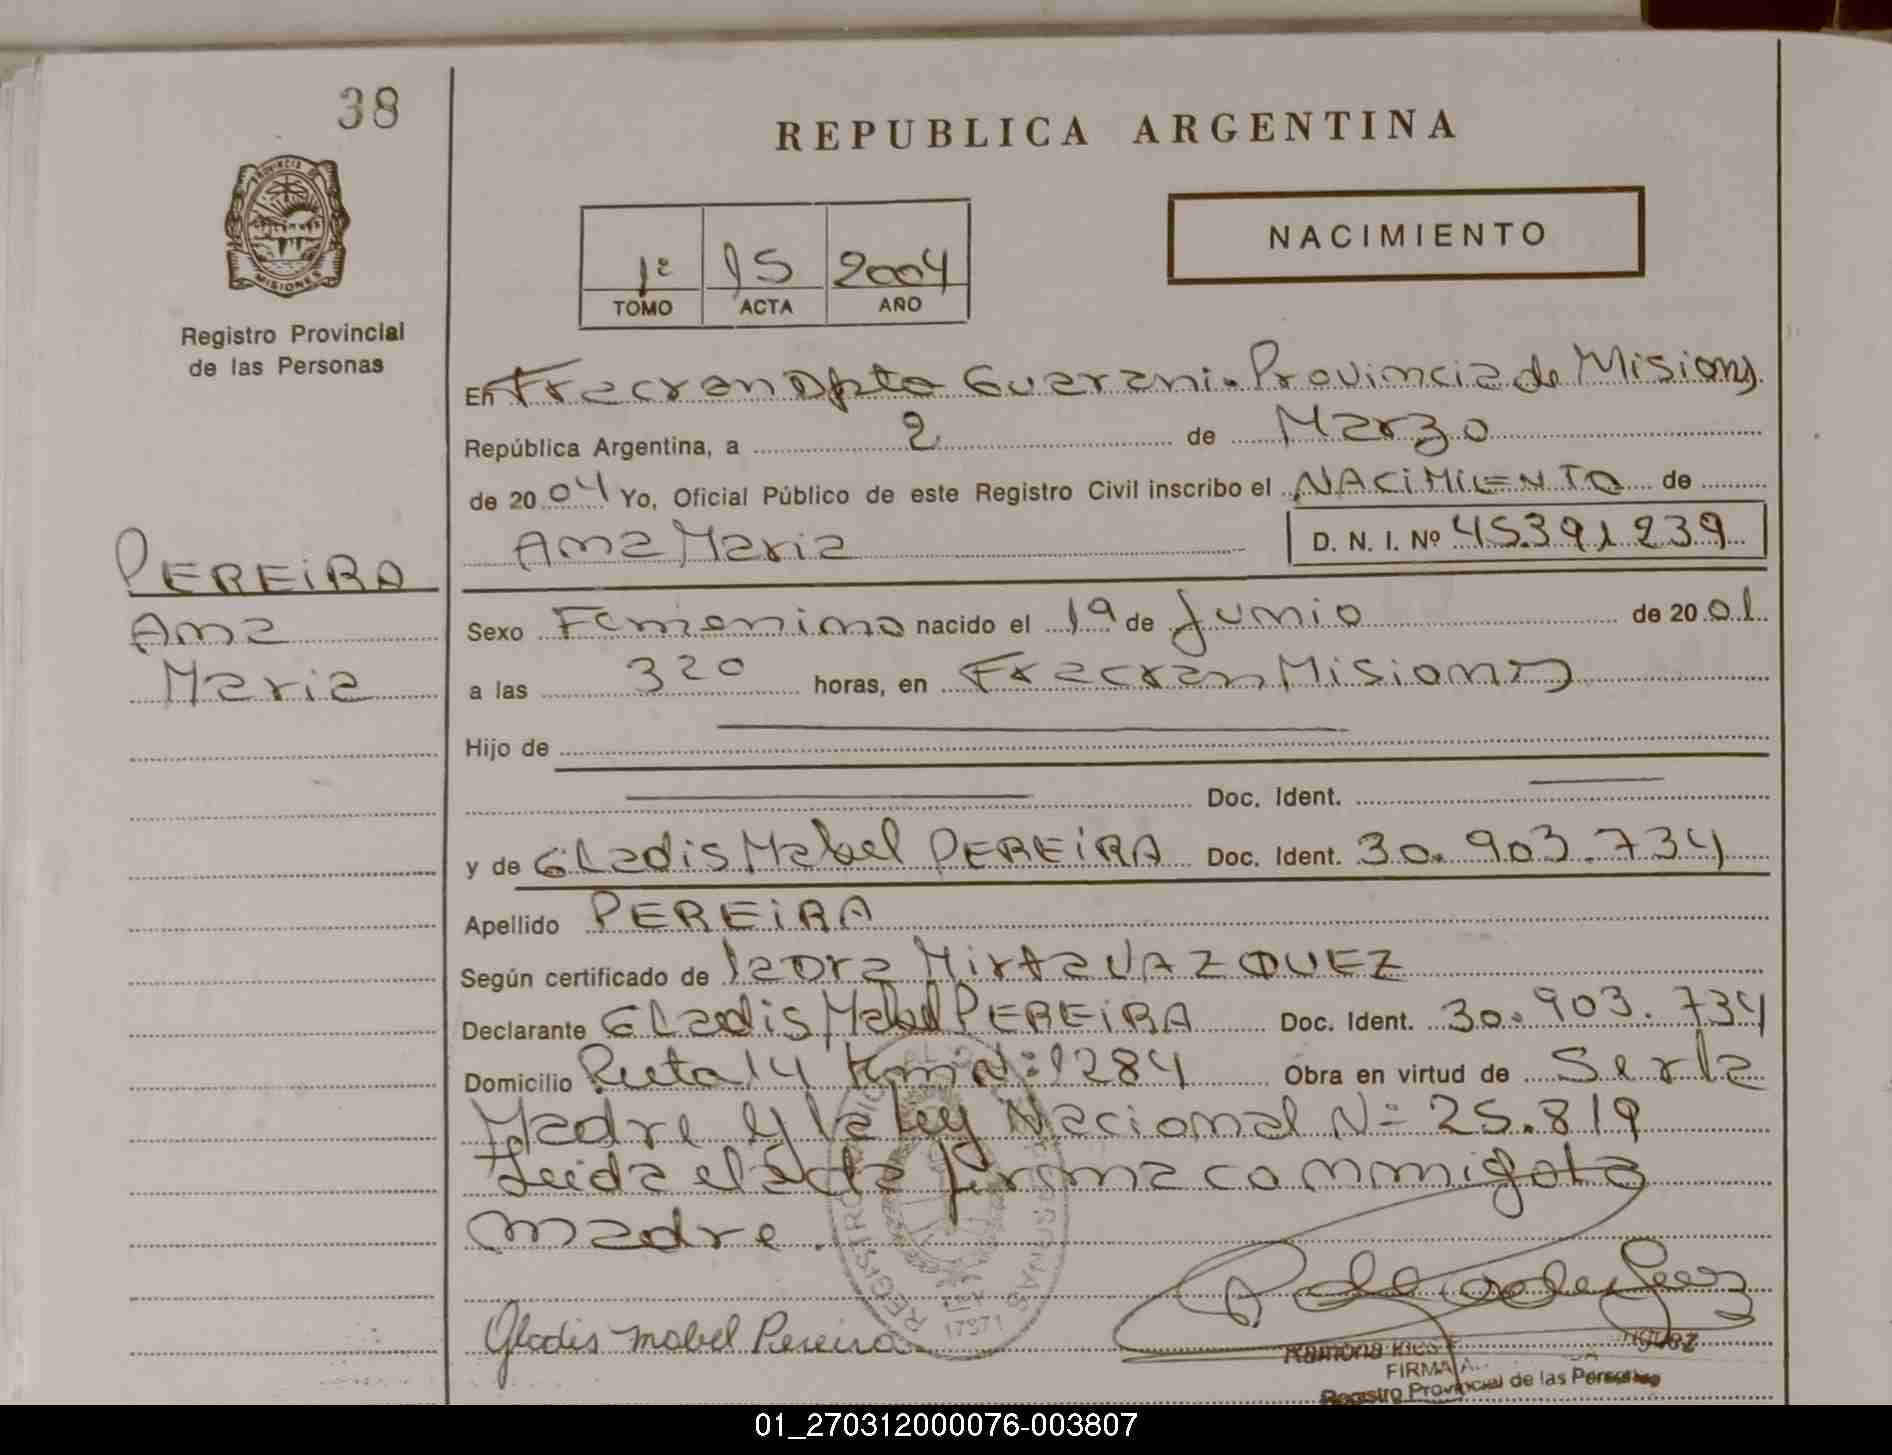 38
REPUBLICA ARGENTINA
PROVINCIA DE
MISIONES
Registro Provincial
de las Personas
NACIMIENTO
1º 15 2004
TOMO ACTA AÑO
En Fracran Dpto Guarani. Provincia de Misiones.
República Argentina, a 2 de Marzo
de 2004 Yo, Oficial Público de este Registro Civil inscribo el NACIMIENTO de
Ana Maria D. N. I. Nº 45.391.239
PEREiRA
Ana
Maria
Sexo Femenino nacido el 19 de Junio de 2001.
a las 320 horas, en Fracran Misiones
Hijo de
Doc. Ident.
y de Gladis Mabel PEREiRA Doc. Ident. 30.903.734
Apellido PEREiRA
Según certificado de Mirta VAZQUEZ
Declarante Gladis Mabel PEREiRA Doc. Ident. 30.903.734
Domicilio Ruta 14 Km Nº 1284 Obra en virtud de Ser la
Madre y la ley Nacional Nº 25.819
Leida el acta firma conmigo la
madre.
Gladis Mabel Pereira
17971
FIRMA A.
Registro Provincial de las Personas
01_270312000076-003807